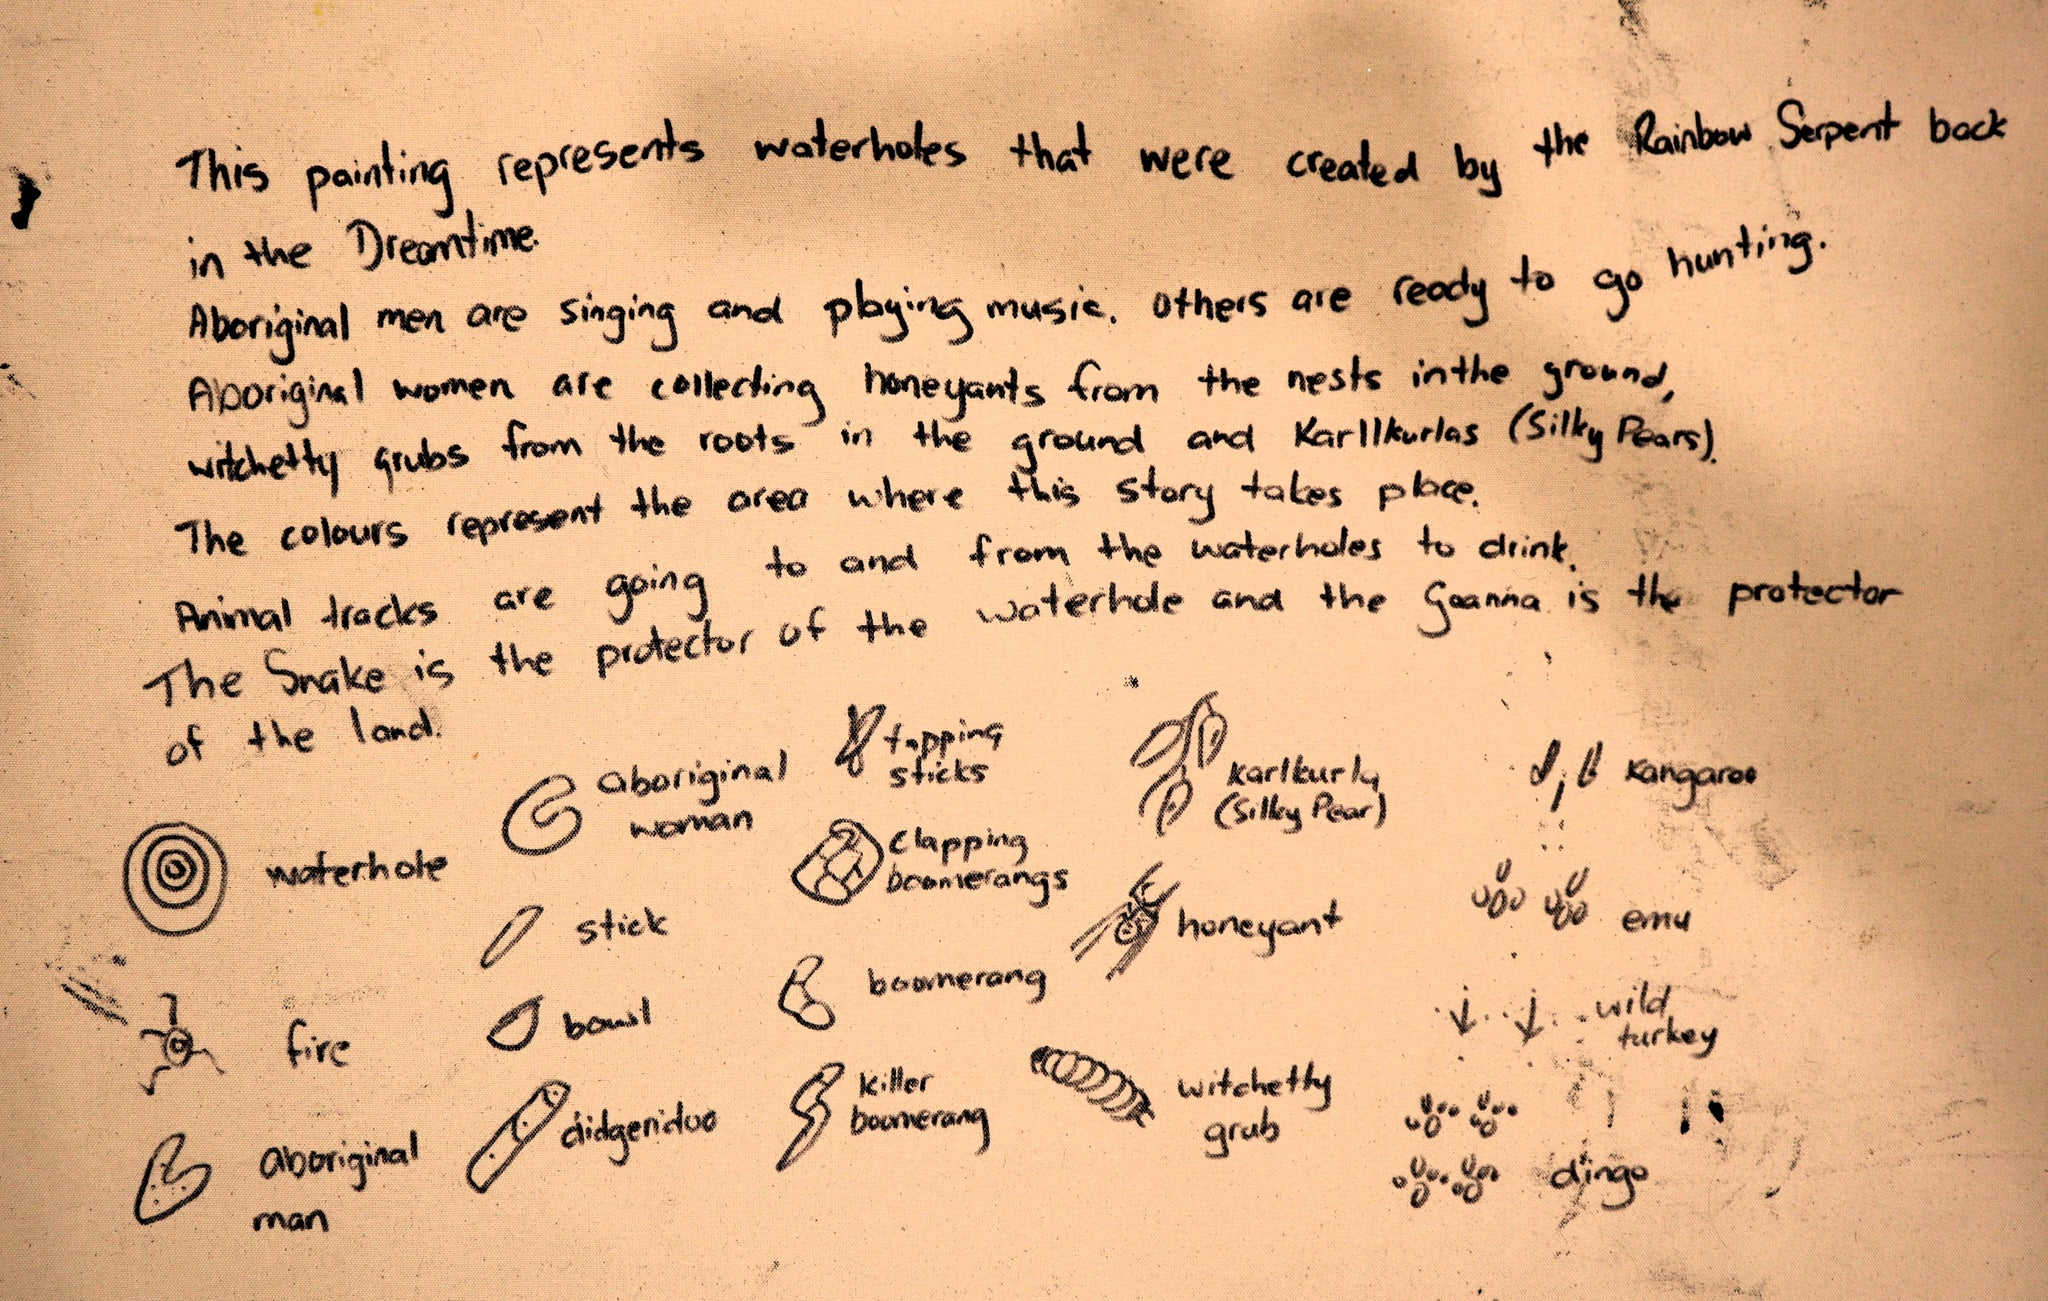 This painting represents waterholes that were created by the Rainbow Serpent back
in the Dreamtime.
Aboriginal men are singing and playing music. Others are ready to go hunting.
Aboriginal women are collecting honeyants from the nests in the ground,
witchetty grubs from the roots in the ground and Karllkurlas (Silky Pears).
The colours represent the area where this story takes place.
Animal tracks are going to and from the waterholes to drink.
The Snake is the protector of the waterhole and the Goanna is the protector
of the land.
waterhole
fire
aboriginal
man
aboriginal
woman
stick
bowl
didgeriduo
tapping
sticks
clapping
boomerangs
boomerang
killer
boomerang
Karlkurly
(Silky Pear)
honeyant
witchetty
grub
kangaroo
emu
wild
turkey
dingo